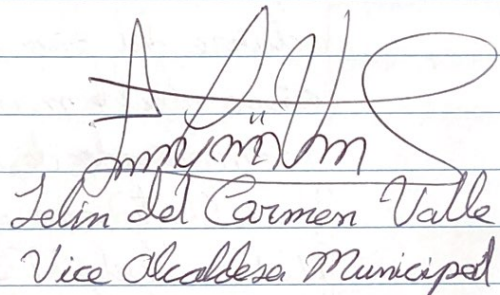 Lelin del Carmen Valle
Vice Alcaldesa Municipal